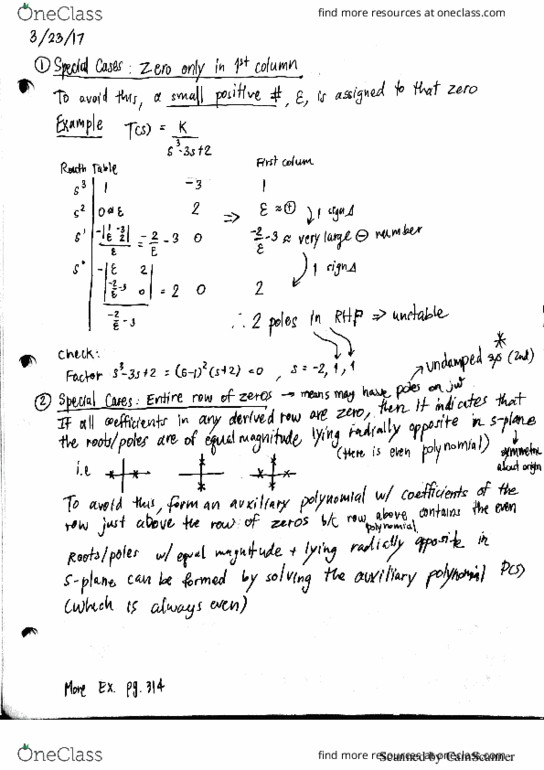 OneClass
find more resources at oneclass.com
3/23/17
① Special Cases: Zero only in 1st column
To avoid this, a small positive #, ε, is assigned to that zero
Example T(s) = K / s³-3s+2
Routh Table First colum
s³ 1 -3 1
s² 0 ε 2 ⇒ ε ≈ ⊕
1 sign Δ
s¹ -|1 -3 ε 2| / ε = -2/ε - 3 0 -2/ε -3 ≈ very large ⊖ number
1 sign Δ
s° -|ε 2 -2/ε-3 0| / -2/ε -3 = 2 0 2
∴ 2 poles in RHP ⇒ unstable
Check:
Factor s³-3s+2 = (s-1)²(s+2) = 0 , s = -2, 1, 1
undamped sys (2nd)
② Special Cases: Entire row of zeros → means may have poles on jω
If all coefficients in any derived row are zero, then it indicates that
the roots/poles are of equal magnitude, lying radially opposite in s-plane
(there is even polynomial)
symmetric about origin
i.e
To avoid this, form an auxiliary polynomial w/ coefficients of the
row just above the row of zeros b/c row above contains the even
polynomial.
Roots/poles w/ equal magnitude + lying radially opposite in
S-plane can be formed by solving the auxiliary polynomial P(s)
(which is always even)
More Ex. pg. 314
OneClass
find more resources at oneclass.com
Scanned by CamScanner